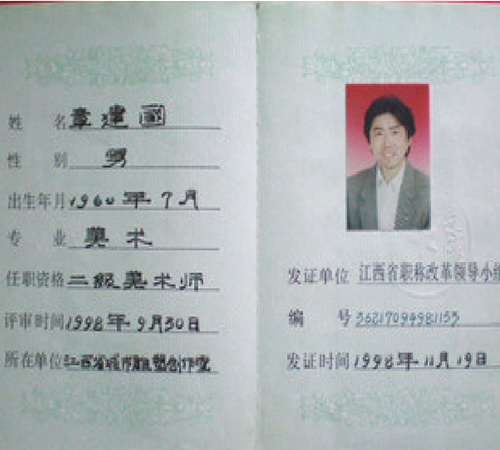 姓 名 章建國
性 别 男
出生年月 1960年7月
专 业 美术
任职资格 二级美术师
评审时间 1998年9月30日
所在单位 江西省
发证单位 江西省职称改革领导小组
编 号 36217094981153
发证时间 1998年11月19日